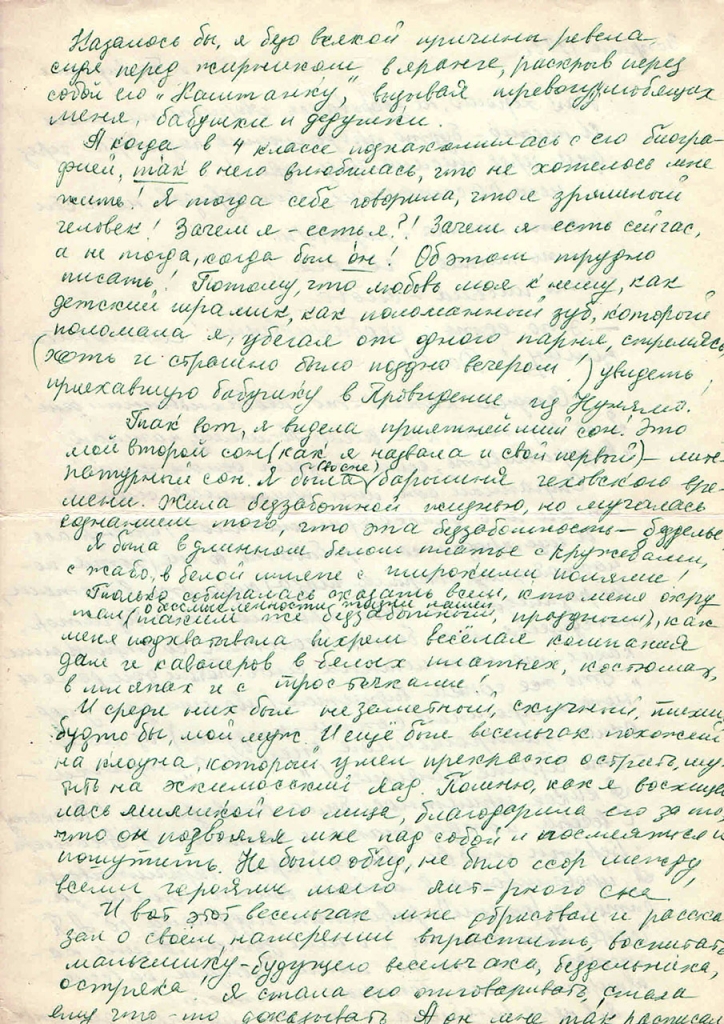 Казалось бы, я безо всякой причины ревела
сидя перед жирником в яранге, раскрыв перед
собой его "Каштанку", вызывая тревогу любящих
меня, бабушки и дедушки.
А когда в 4 классе познакомилась с его биогра-
фией, так в него влюбилась, что не хотелось мне
жить! Я тогда себе говорила, что я зряшный
человек! Зачем я - есть я?! Зачем я есть сейчас,
а не тогда, когда был он! Об этом трудно
писать! Потому, что любовь моя к нему, как
детский шрамик, как поломанный зуб, который
поломала я, убегая от одного парня, стремясь,
(хоть и страшно было поздно вечером!) увидеть
приехавшую бабушку в Провидение из Нунямо.
Так вот, я видела приятнейший сон! Это
мой второй сон (как я назвала и свой первый) - лит-
ратурный сон. Я была (во сне) барышня чеховского вре-
мени. Жила беззаботной жизнью, но мучалась
сознанием того, что эта беззаботность - безделье
Я была в длинном белом платье с кружевами,
с жабо, в белой шляпе с широкими полями!
Только собиралась сказать всем, кто меня окру
жал (таким же беззаботным, праздным), как
о бессмысленности жизни нашей
меня подхватывала вихрем весёлая компания
дам и кавалеров в белых платьях, костюмах,
в шляпах и с тросточками!
И среди них был незаметный, скучный,
будто бы, мой муж. И ещё был весельчак похожий
на клоуна, который умел прекрасно острить, шу-
тить на эскимосский лад. Помню, как я восхища
лась мимикой его лица, благодарила его за то,
что он позволял мне над собой и посмеяться и
пошутить. Не было обид, не было ссор между
всеми героями моего лит-рного сна.
И вот этот весельчак мне обрисовал и расска
зал о своём намерении вырастить, воспитать
мальчишку - будущего весельчака, бездельника,
остряка! Я стала его отговаривать, стала
ему что-то доказывать А он мне так расписал